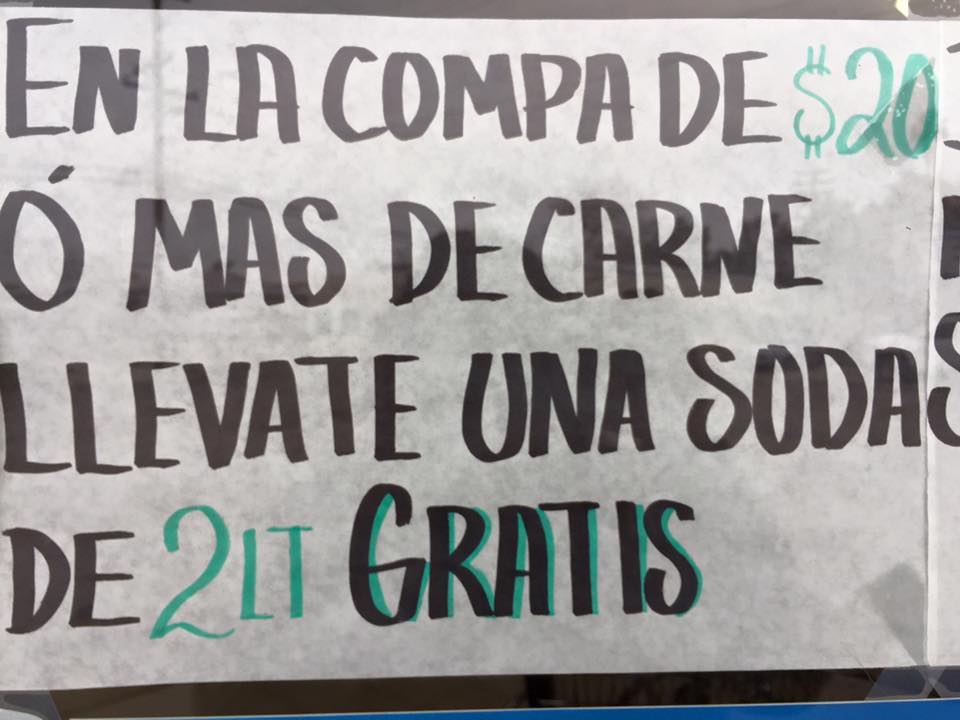 EN LA COMPA DE $20
Ó MAS DE CARNE
LLEVATE UNA SODA
DE 2LT GRATIS